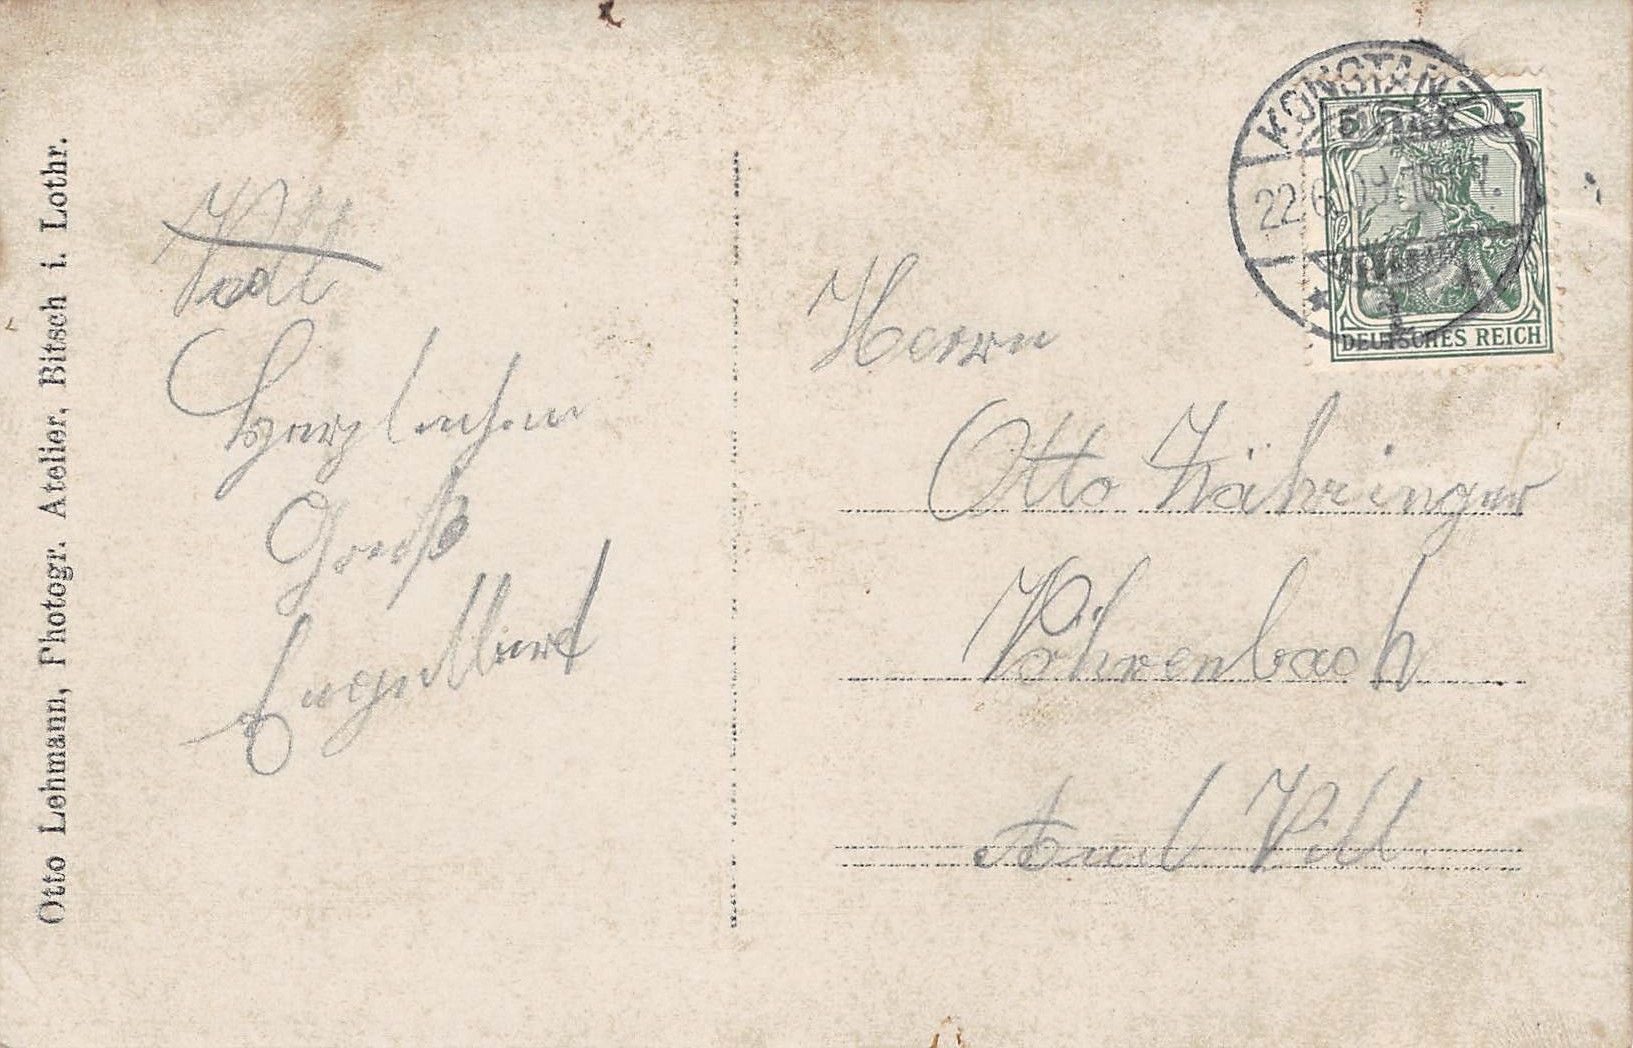 Otto Lehmann, Photogr. Atelier, Bitsch i. Lothr.
Herzlichen
Gruß
Engelbert
KONSTANZ
22.6.09.
5 5
DEUTSCHES REICH
Herrn
Otto Zähringer
Vöhrenbach
Amt Vill.